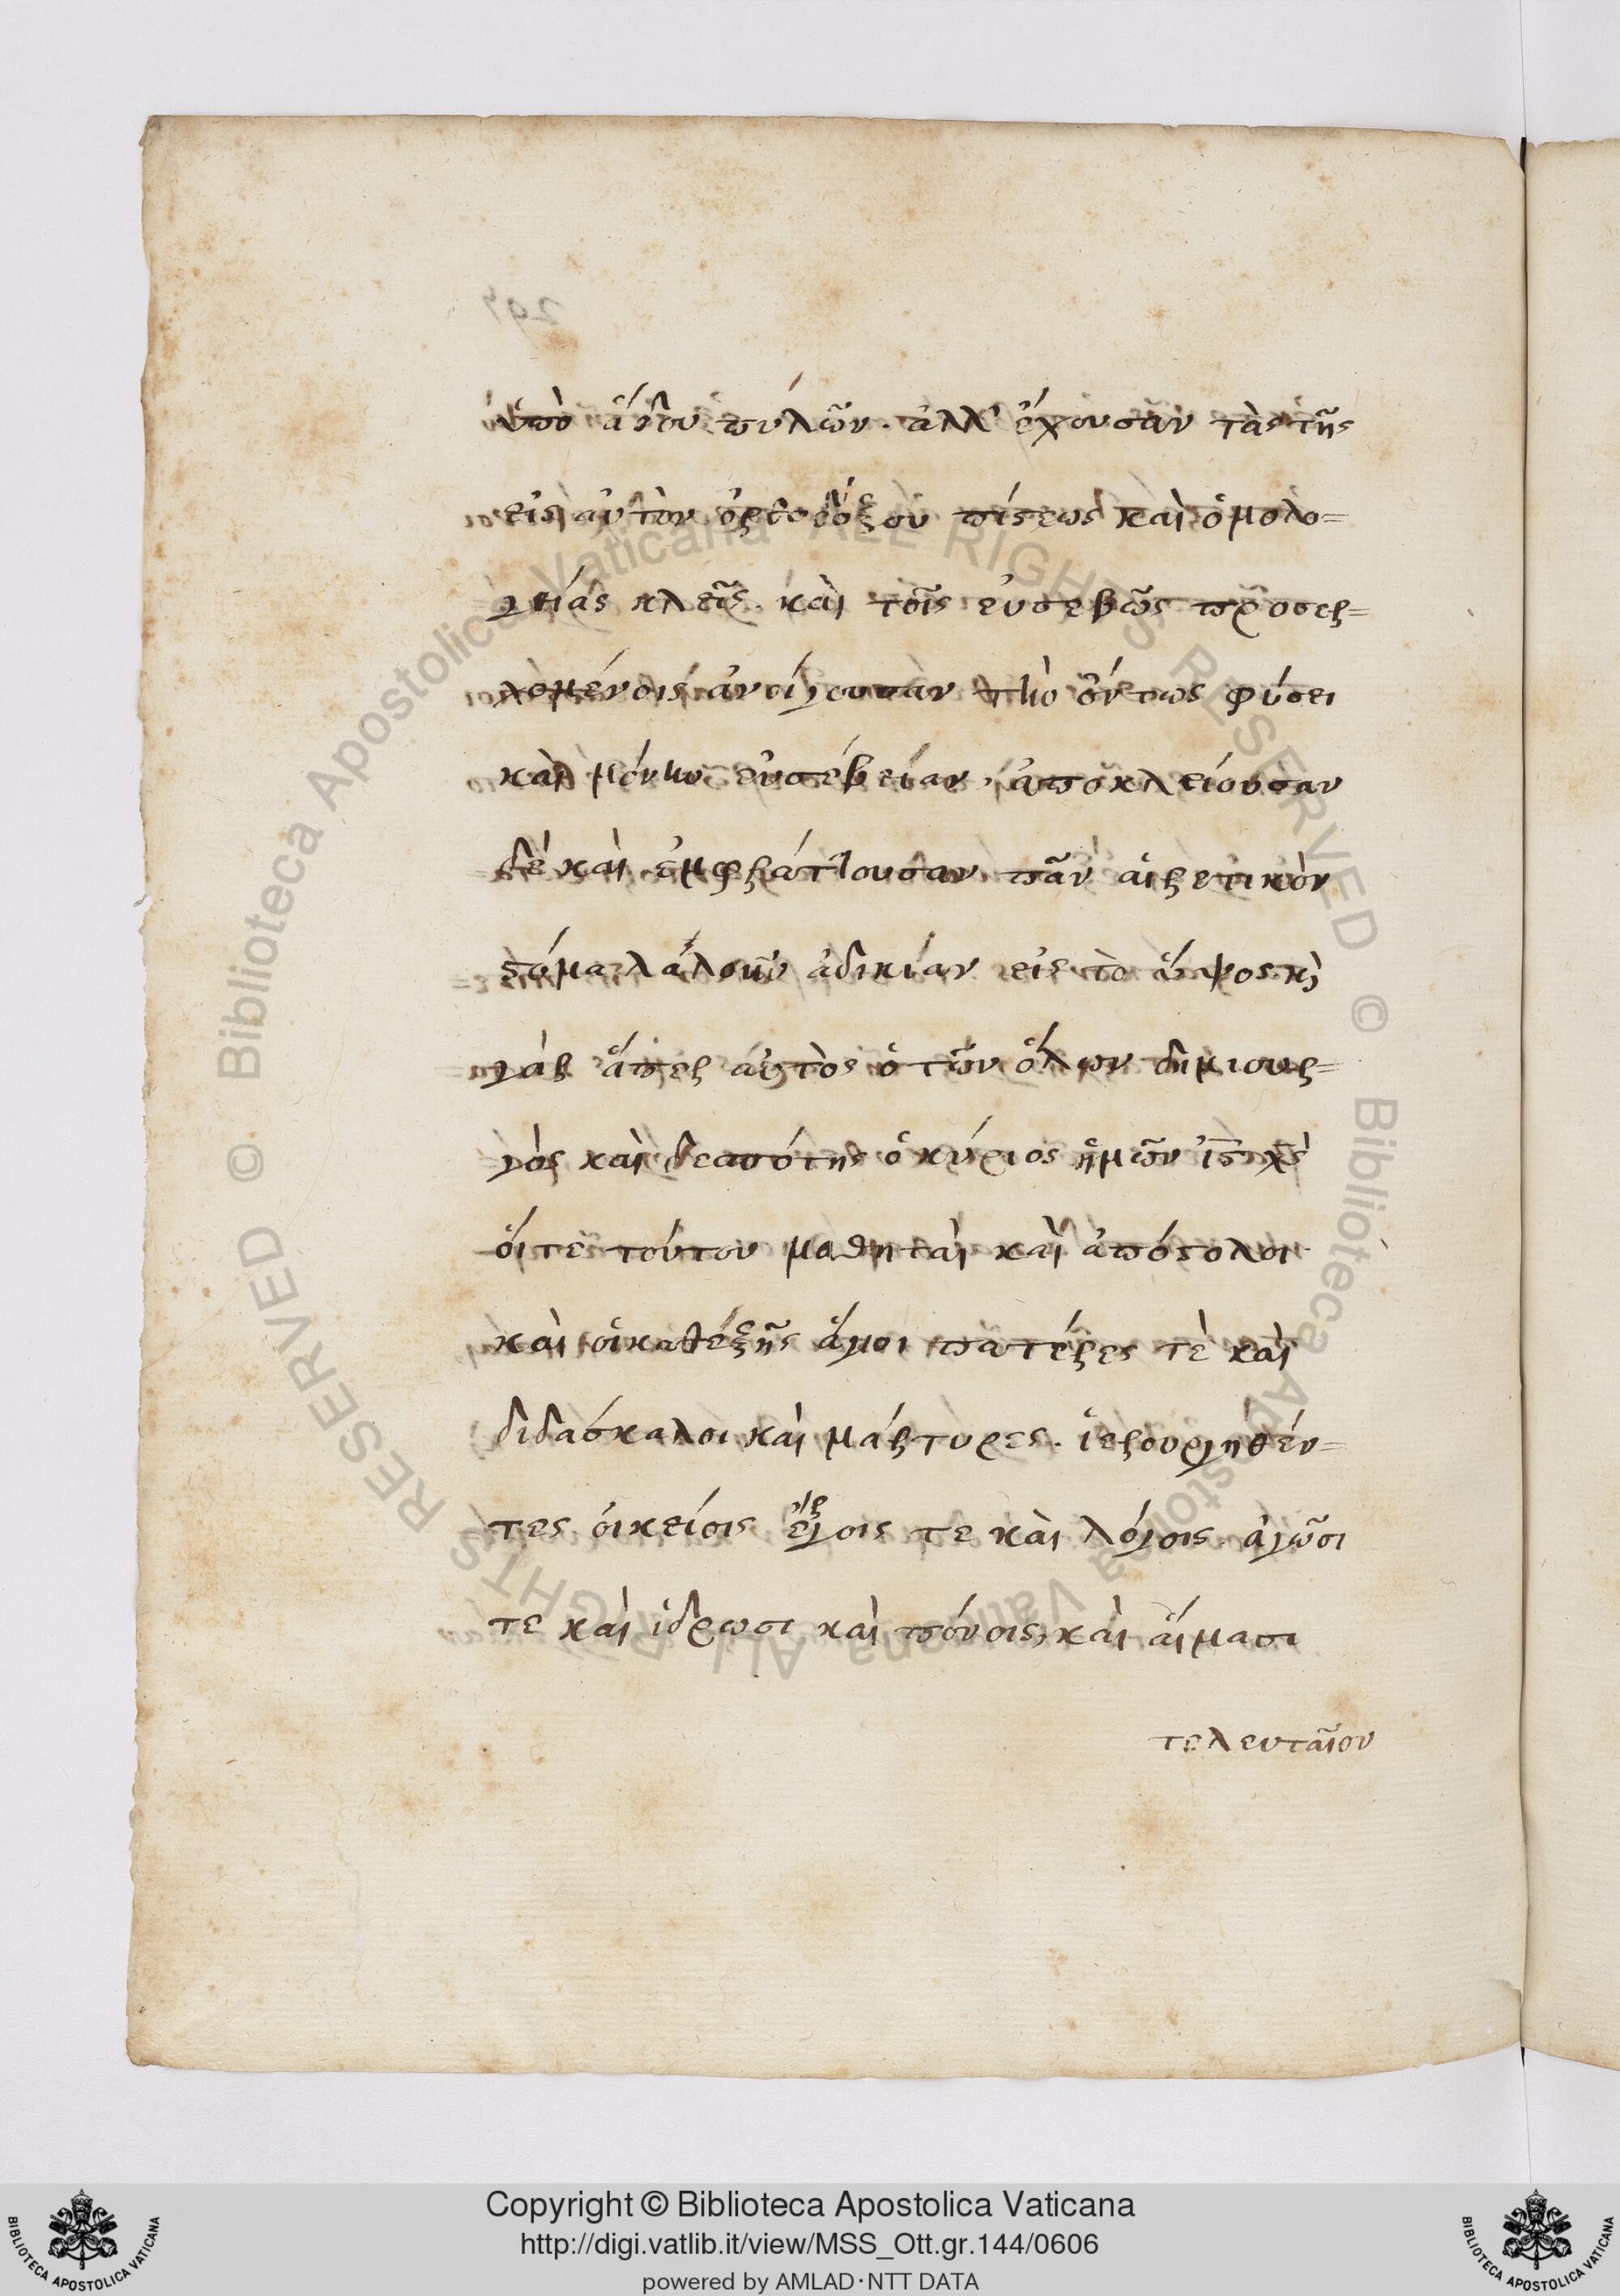 ὑπὸ ἅδου πυλῶν. ἀλλ' ἔχουσαν τὰς τῆς
εἰς αὐτὸν ὀρθοδόξου πίστεως καὶ ὁμολο=
γίας κλεῖς. καὶ τοῖς εὐσεβῶς προσερ=
χομένοις ἀνοίγουσαν τὴν ὄντως φύσει
καὶ μόνην εὐσέβειαν, ἀποκλείουσαν
δὲ καὶ ἐμφράττουσαν πᾶν αἱρετικὸν
στόμα λαλοῦν ἀδικίαν εἰς τὸ ὕψος. κὶ
γὰρ ἅπερ αὐτὸς ὁ τῶν ὅλων δημιουρ=
γὸς καὶ δεσπότης ὁ κύριος ἡμῶν ι̅ς̅ χ̅ς̅
οἵ τε τούτου μαθηταὶ καὶ ἀπόστολοι.
καὶ οἱ καθέξῆς ἅγιοι πατέρες τὲ καὶ
διδάσκαλοι καὶ μάρτυρες. ἱερουργηθέν=
τες οἰκείοις ἔργοις τε καὶ λόγοις. ἀγῶσι
τε καὶ ἱδρωσι καὶ πόνοις, καὶ αἵμασι
τελευταῖον
297
Copyright © Biblioteca Apostolica Vaticana
http://digi.vatlib.it/view/MSS_Ott.gr.144/0606
powered by AMLAD·NTT DATA
BIBLIOTECA APOSTOLICA VATICANA
BIBLIOTECA APOSTOLICA VATICANA
© Biblioteca Apostolica Vaticana ALL RIGHTS RESERVED
© Biblioteca Apostolica Vaticana ALL RIGHTS RESERVED